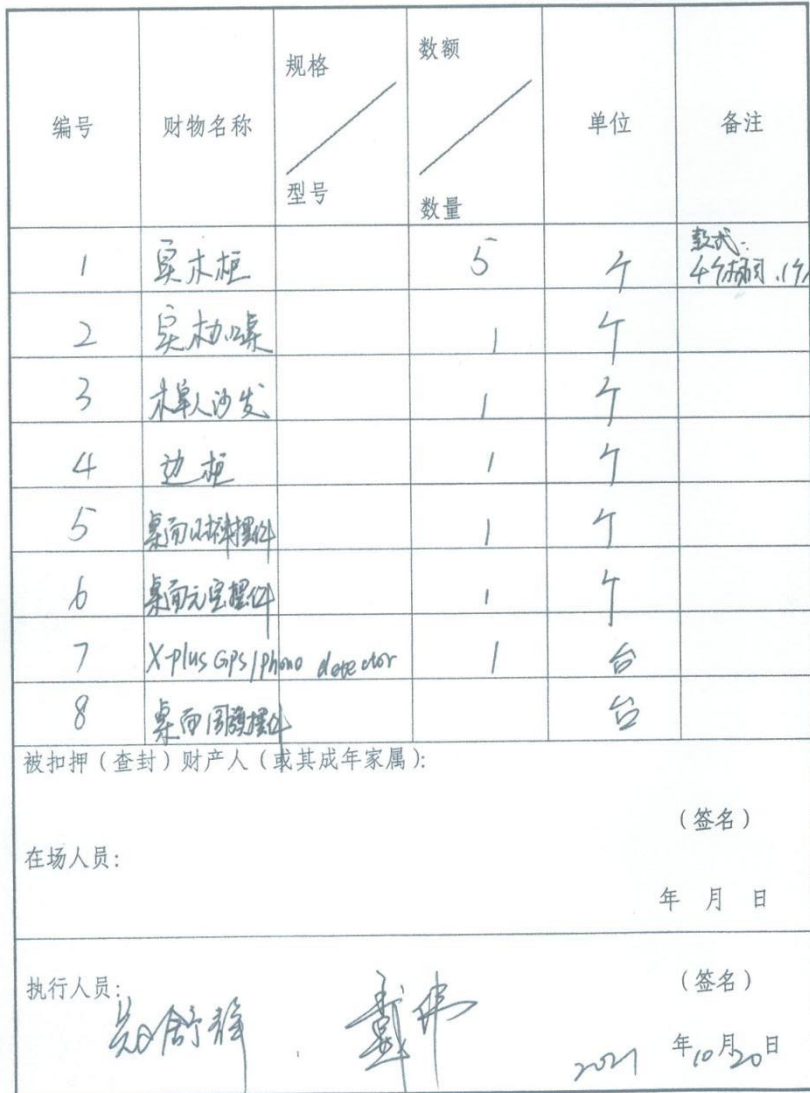 编号 财物名称 规格 型号 数额 数量 单位 备注
1 实木柜 5 个 款式:
4个 1个
2 实木办公桌 1 个
3 木单人沙发 1 个
4 边柜 1 个
5 桌面财神摆件 1 个
6 桌面元宝摆件 1 个
7 X-plus GPS/phone detector 1 台
8 桌面国旗摆件 台
被扣押(查封)财产人(或其成年家属):
(签名)
在场人员:
年 月 日
执行人员: (签名)
舒 戴伟
2021 年 10 月 20 日